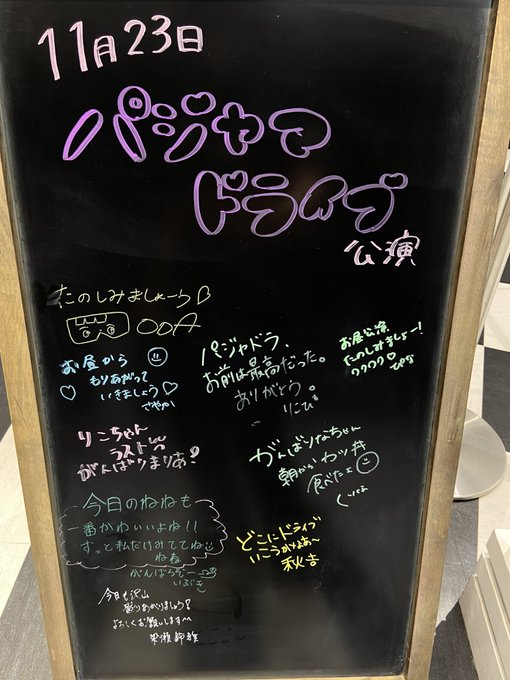 11月23日
パジャマ
ドライブ
公演
たのしみましょーう
ODA
お昼から
もりあがって
いきましょう
さやか
パジャドラ、
お前は最高だった。
ありがとう。
りこぴ
お昼公演
たのしみましょー!
ワクワク♡
ぴな
りこちゃん
ラスト
がんばりまりあ!
がんばりなちゃん
朝からカツ丼
食べたよ
今日のねねも
一番かわいいよね!!
ずっと私だけみててね
ねね
がんばるぞー
いぶき
どこにドライブ
いこうかなぁ〜
秋吉
今日も沢山
盛りあがりましょう!
よろしくお願いします〜